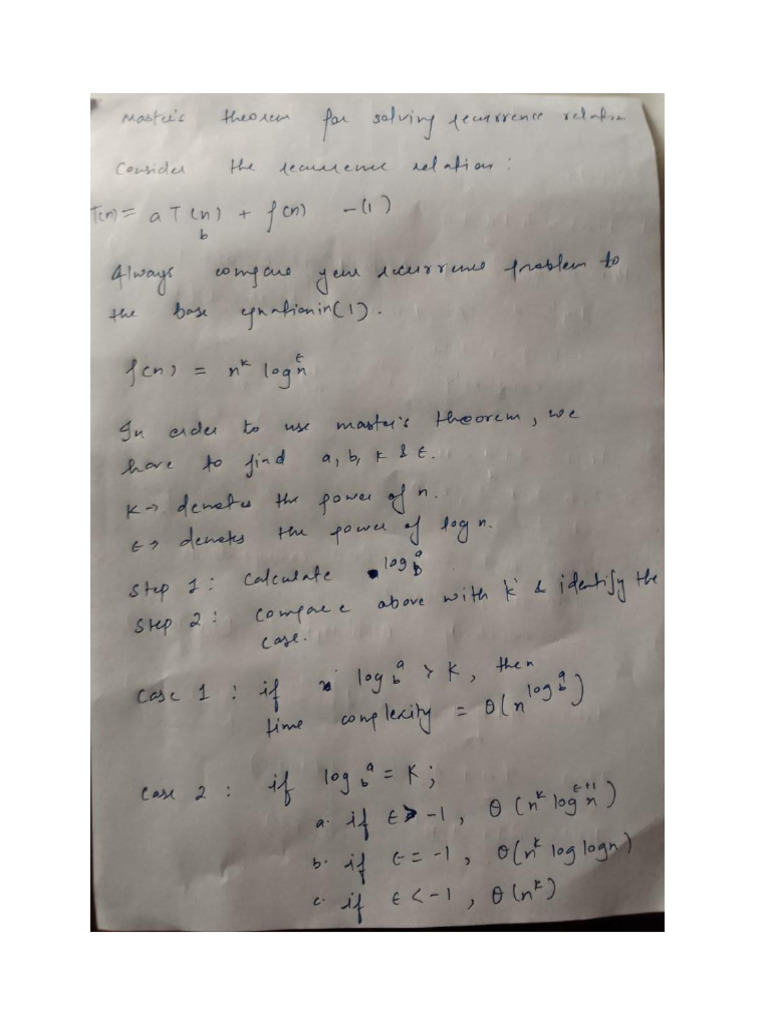 Master's theorem for solving recurrence relation
Consider the recurrence relation :
T(n) = a T (n/b) + f(n) -(1)
Always compare your recurrence problem to
the base equation in (1).
f(n) = n^k log^ε n
In order to use master's theorem, we
have to find a, b, k & ε.
k → denotes the power of n.
ε → denotes the power of log n.
Step 1 : Calculate log_b^a
Step 2 : Compare above with k & identify the
case.
Case 1 : if log_b^a > k, then
time complexity = θ(n^log_b^a)
Case 2 : if log_b^a = k;
a. if ε > -1, θ (n^k log^ε+1 n)
b. if ε = -1, θ(n^k log log n)
c. if ε < -1, θ (n^k)